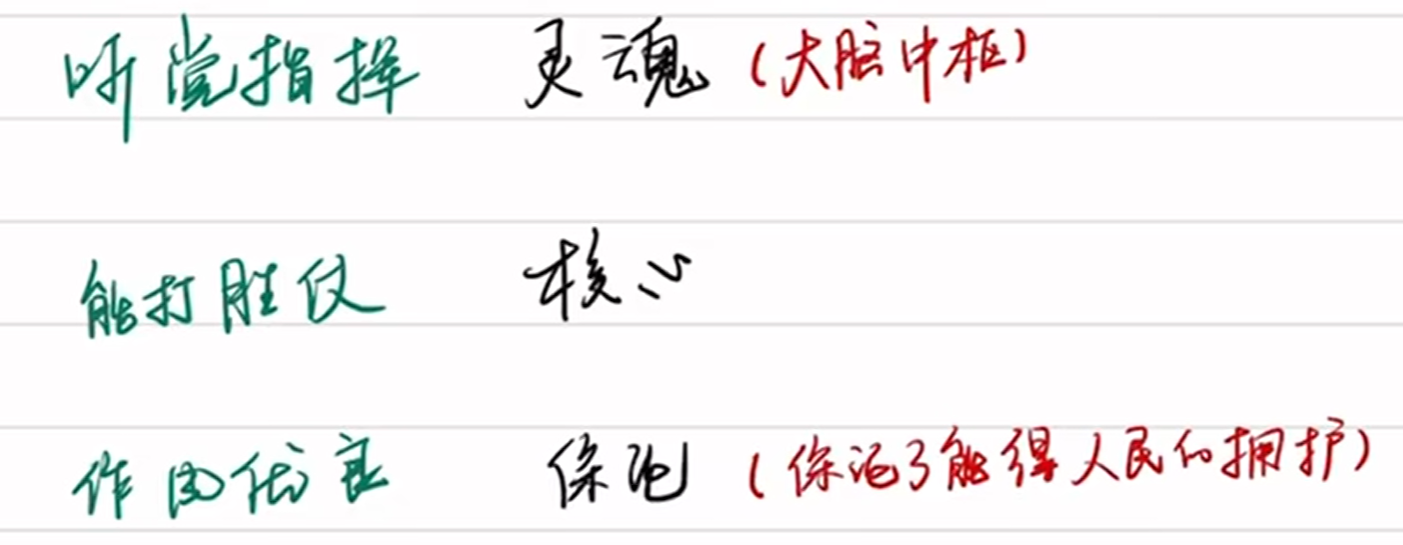 听党指挥 灵魂 (大脑中枢)
能打胜仗 核心
作风优良 保证 (保证了能得人民的拥护)